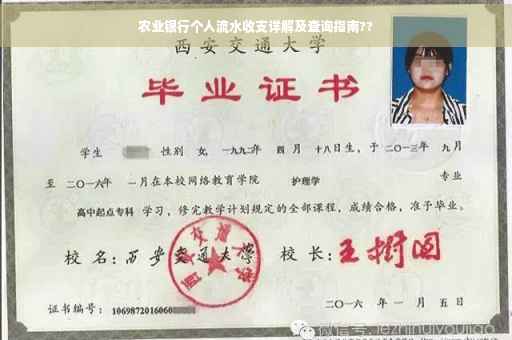 农业银行个人流水收支详解及查询指南??
西安交通大学
毕业证书
学生 性别 女, 一九九二年 四月 十八日生, 于 二〇一三年 九月
至 二〇一六年 一月在本校网络教育学院 护理学 专业
高中起点专科 学习, 修完教学计划规定的全部课程, 成绩合格, 准予毕业。
校名: 西安交通大学 校长: 王树国
西安交通大学
证书编号: 1069872016060
二〇一六年 一月 五日
微信号: jezhihuiyoujiao